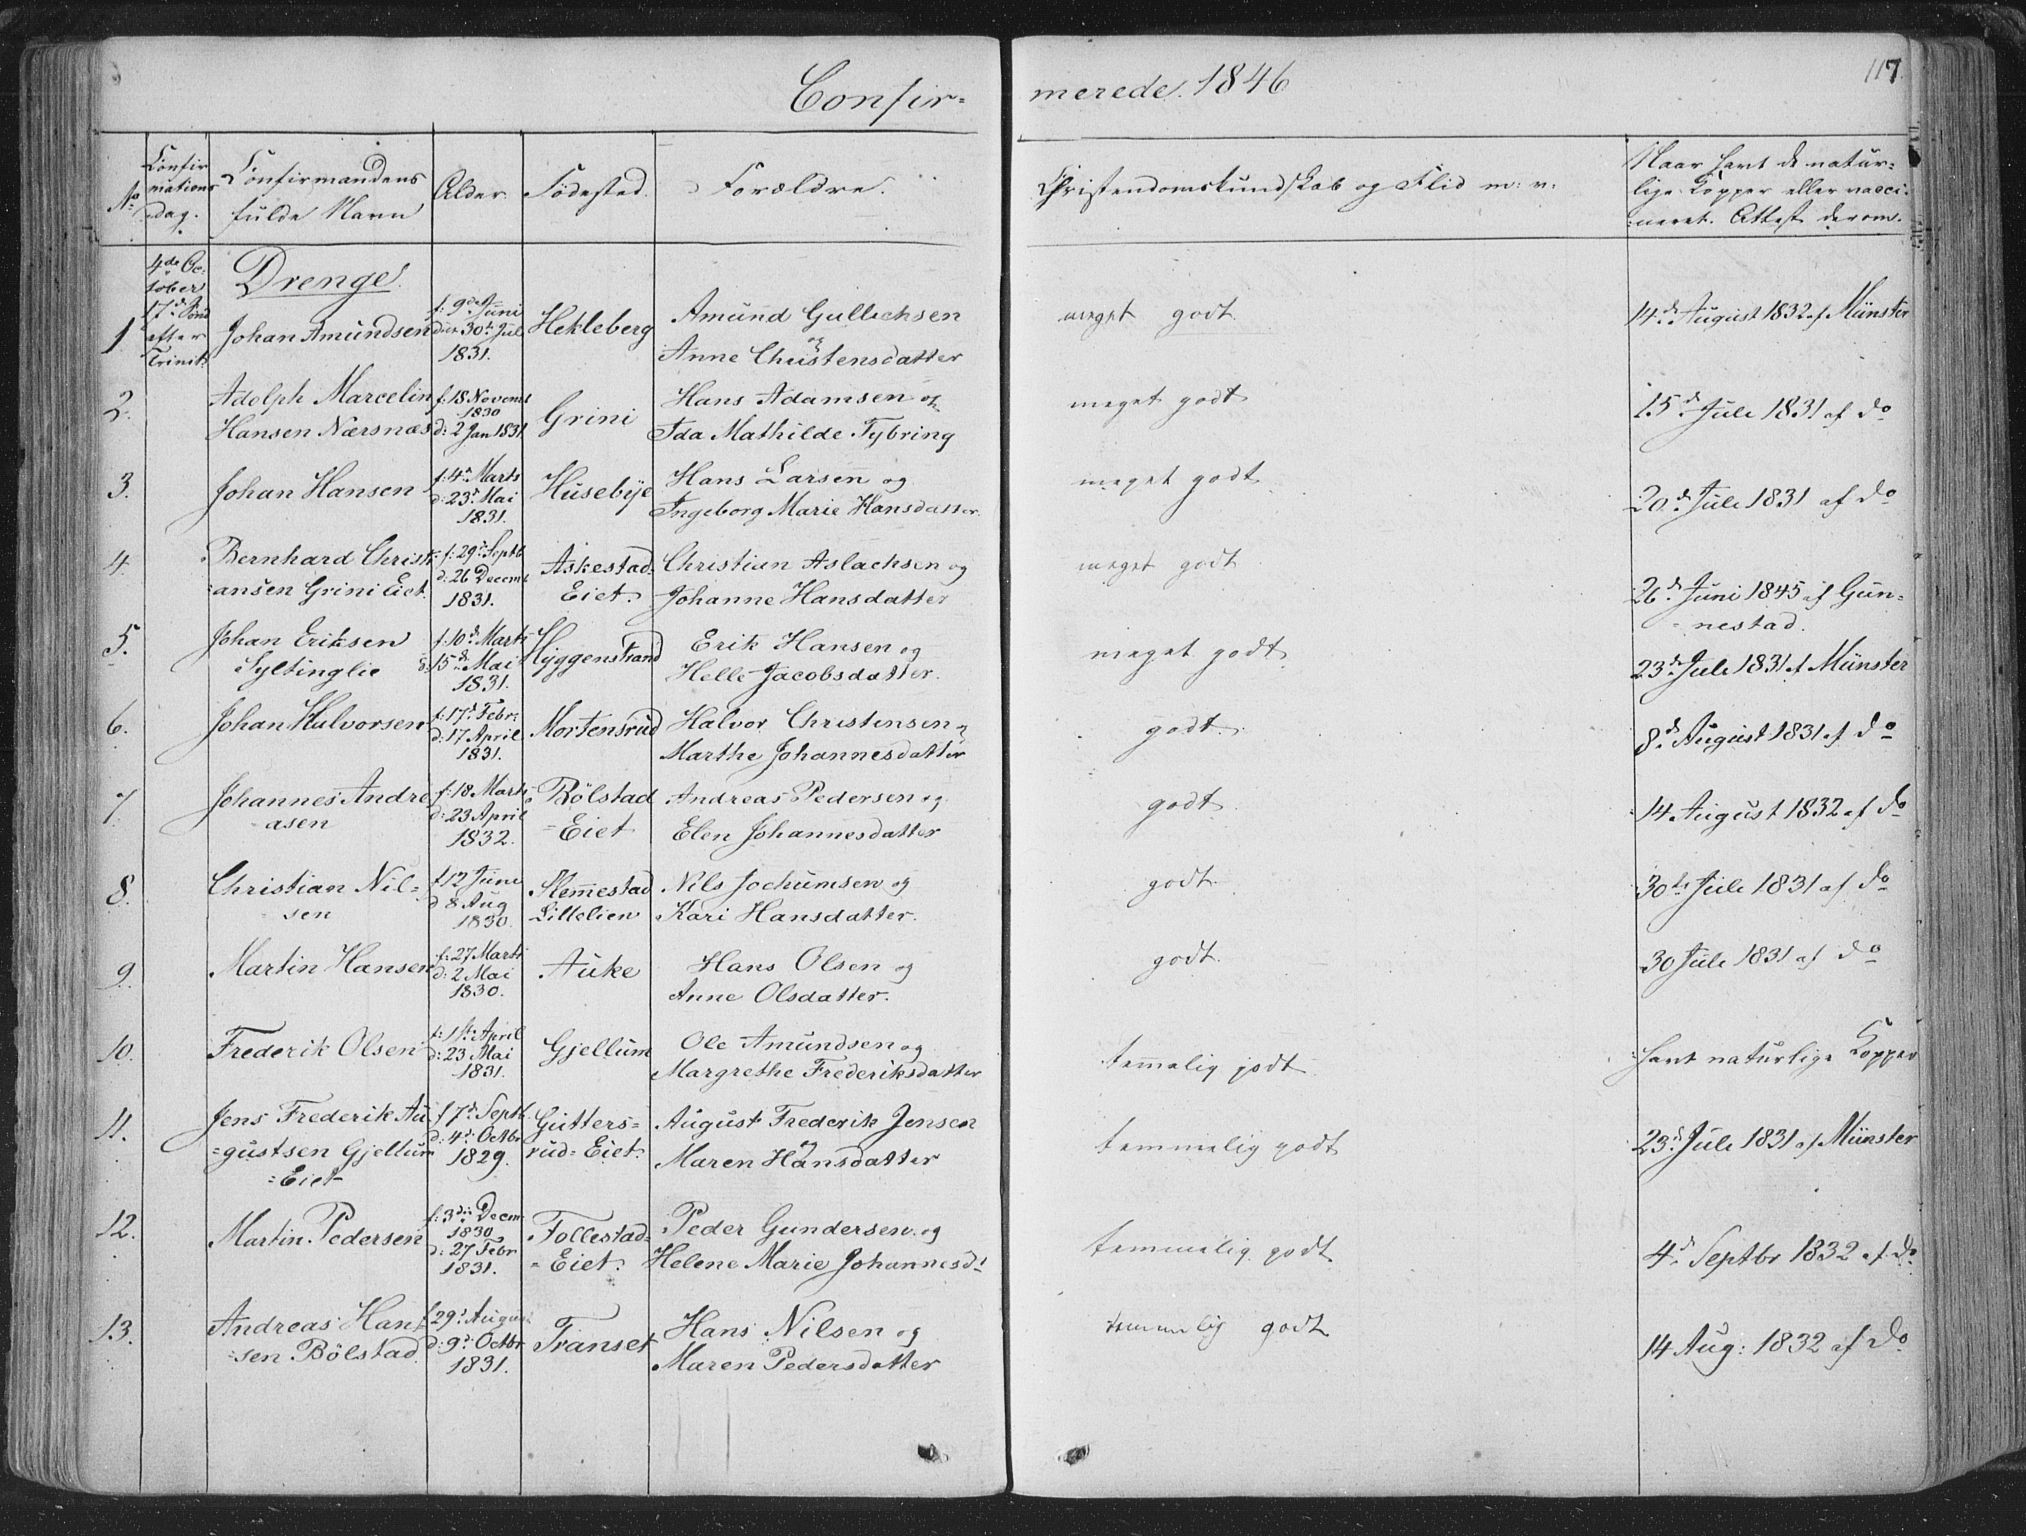 Confir=
merede. 1846
117
No
Confir
mations
dag.
Confirmandens
fulde Navn
Alder.
Födested.
Forældre.
Christendomskundskab og Flid m: v:
Naar havt de natür=
lige Kopper eller vacci=
neret. Attest derom.
4de Oc=
tober
17d Sönd
efter
Trinit:
Drenge.
1
Johan Amundsen
f: 9de Juni
döbt 30te Jul
1831.
Hekleberg
Amund Gullichsen
og
Anne Christensdatter
meget godt
14d August 1832 af Münster
2.
Adolph Marcelin
Hansen Nærsnæs
f: 18 Novemb
1830
d: 2 Jan 1831
Grini
Hans Adamsen og
Ida Mathilde Tybring
meget godt
15d Juli 1831 af do
3.
Johan Hansen
f: 4d Marts
d: 23d Mai
1831.
Husebye
Hans Larsen og
Ingeborg Marie Hansdatter.
meget godt
20d Juli 1831 af do
4.
Bernhard Christi
=ansen Grini Eiet.
f: 29d Septb
d: 26 Decemb
1831.
Askestad=
Eiet.
Christian Aslachsen og
Johanne Hansdatter
meget godt
26d Juni 1845 af Gun=
nestad.
5.
Johan Eriksen
Syltinglie
f: 10d Marts
d: 15d Mai
1831.
Hyggenstrand
Erik Hansen og
Helle Jacobsdatter.
meget godt
23d Juli 1831 af Münster
6.
Johan Halvorsen
f: 17d Febr:
d: 17 April
1831.
Mortensrud
Halvor Christensen og
Marthe Johannesdatter
godt.
8d August 1831 af do
7
Johannes Andre
asen
f: 18 Marts
d: 23 April
1832.
Bölstad
=Eiet
Andreas Pedersen og
Elen Johannesdatter
godt
14 August 1832 af do
8.
Christian Nil=
sen
f 12 Juni
d 8 Aug
1830.
Slemmestad
Lillelien
Nils Jochumsen og
Kari Hansdatter.
godt
30te Juli 1831 af do
9.
Martin Hansen
f: 27 Marts
d: 2 Mai
1830.
Auke
Hans Olsen og
Anne Olsdatter.
godt.
30 Juli 1831 af do
10.
Frederik Olsen
f: 1ste April
d: 23 Mai
1831.
Gjellum
Ole Amundsen og
Margrethe Frederiksdatter
temmelig godt
havt naturlige Kopper
11.
Jens Frederik Au
=gustsen Gjellum
=Eiet
f 7d Septb
d: 4d Octbr
1829.
Gutters=
rud=Eiet.
August Frederik Jensen
og
Maren Hansdatter
temmelig godt
23d Juli 1831 af Münster
12.
Martin Pedersen
f: 3die Decm
1830
d: 27 Febr
1831.
Follestad=
=Eiet.
Peder Gundersen og
Helene Marie Johannesd:
temmelig godt
4d Septbr 1832 af do
13.
Andreas Han
=sen Bölstad.
f 29d August
d: 9d Octbr
1831.
Transet
Hans Nilsen og
Maren Pedersdatter
temmelig godt
14 Aug: 1832 af do